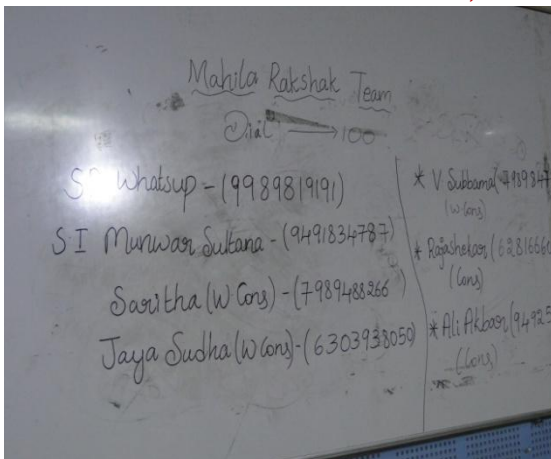 Mahila Rakshak Team
Dial → 100
SP Whatsup - (9989819191)
S.I Munwar Sultana - (9491834787)
Saritha (W Cons) - (7989488266
Jaya Sudha (W Cons) - (6303938050)
* V Subbama
(W Cons)
* Rajashekar (6281666
(Cons)
* Ali Akbar (9492
(Cons)